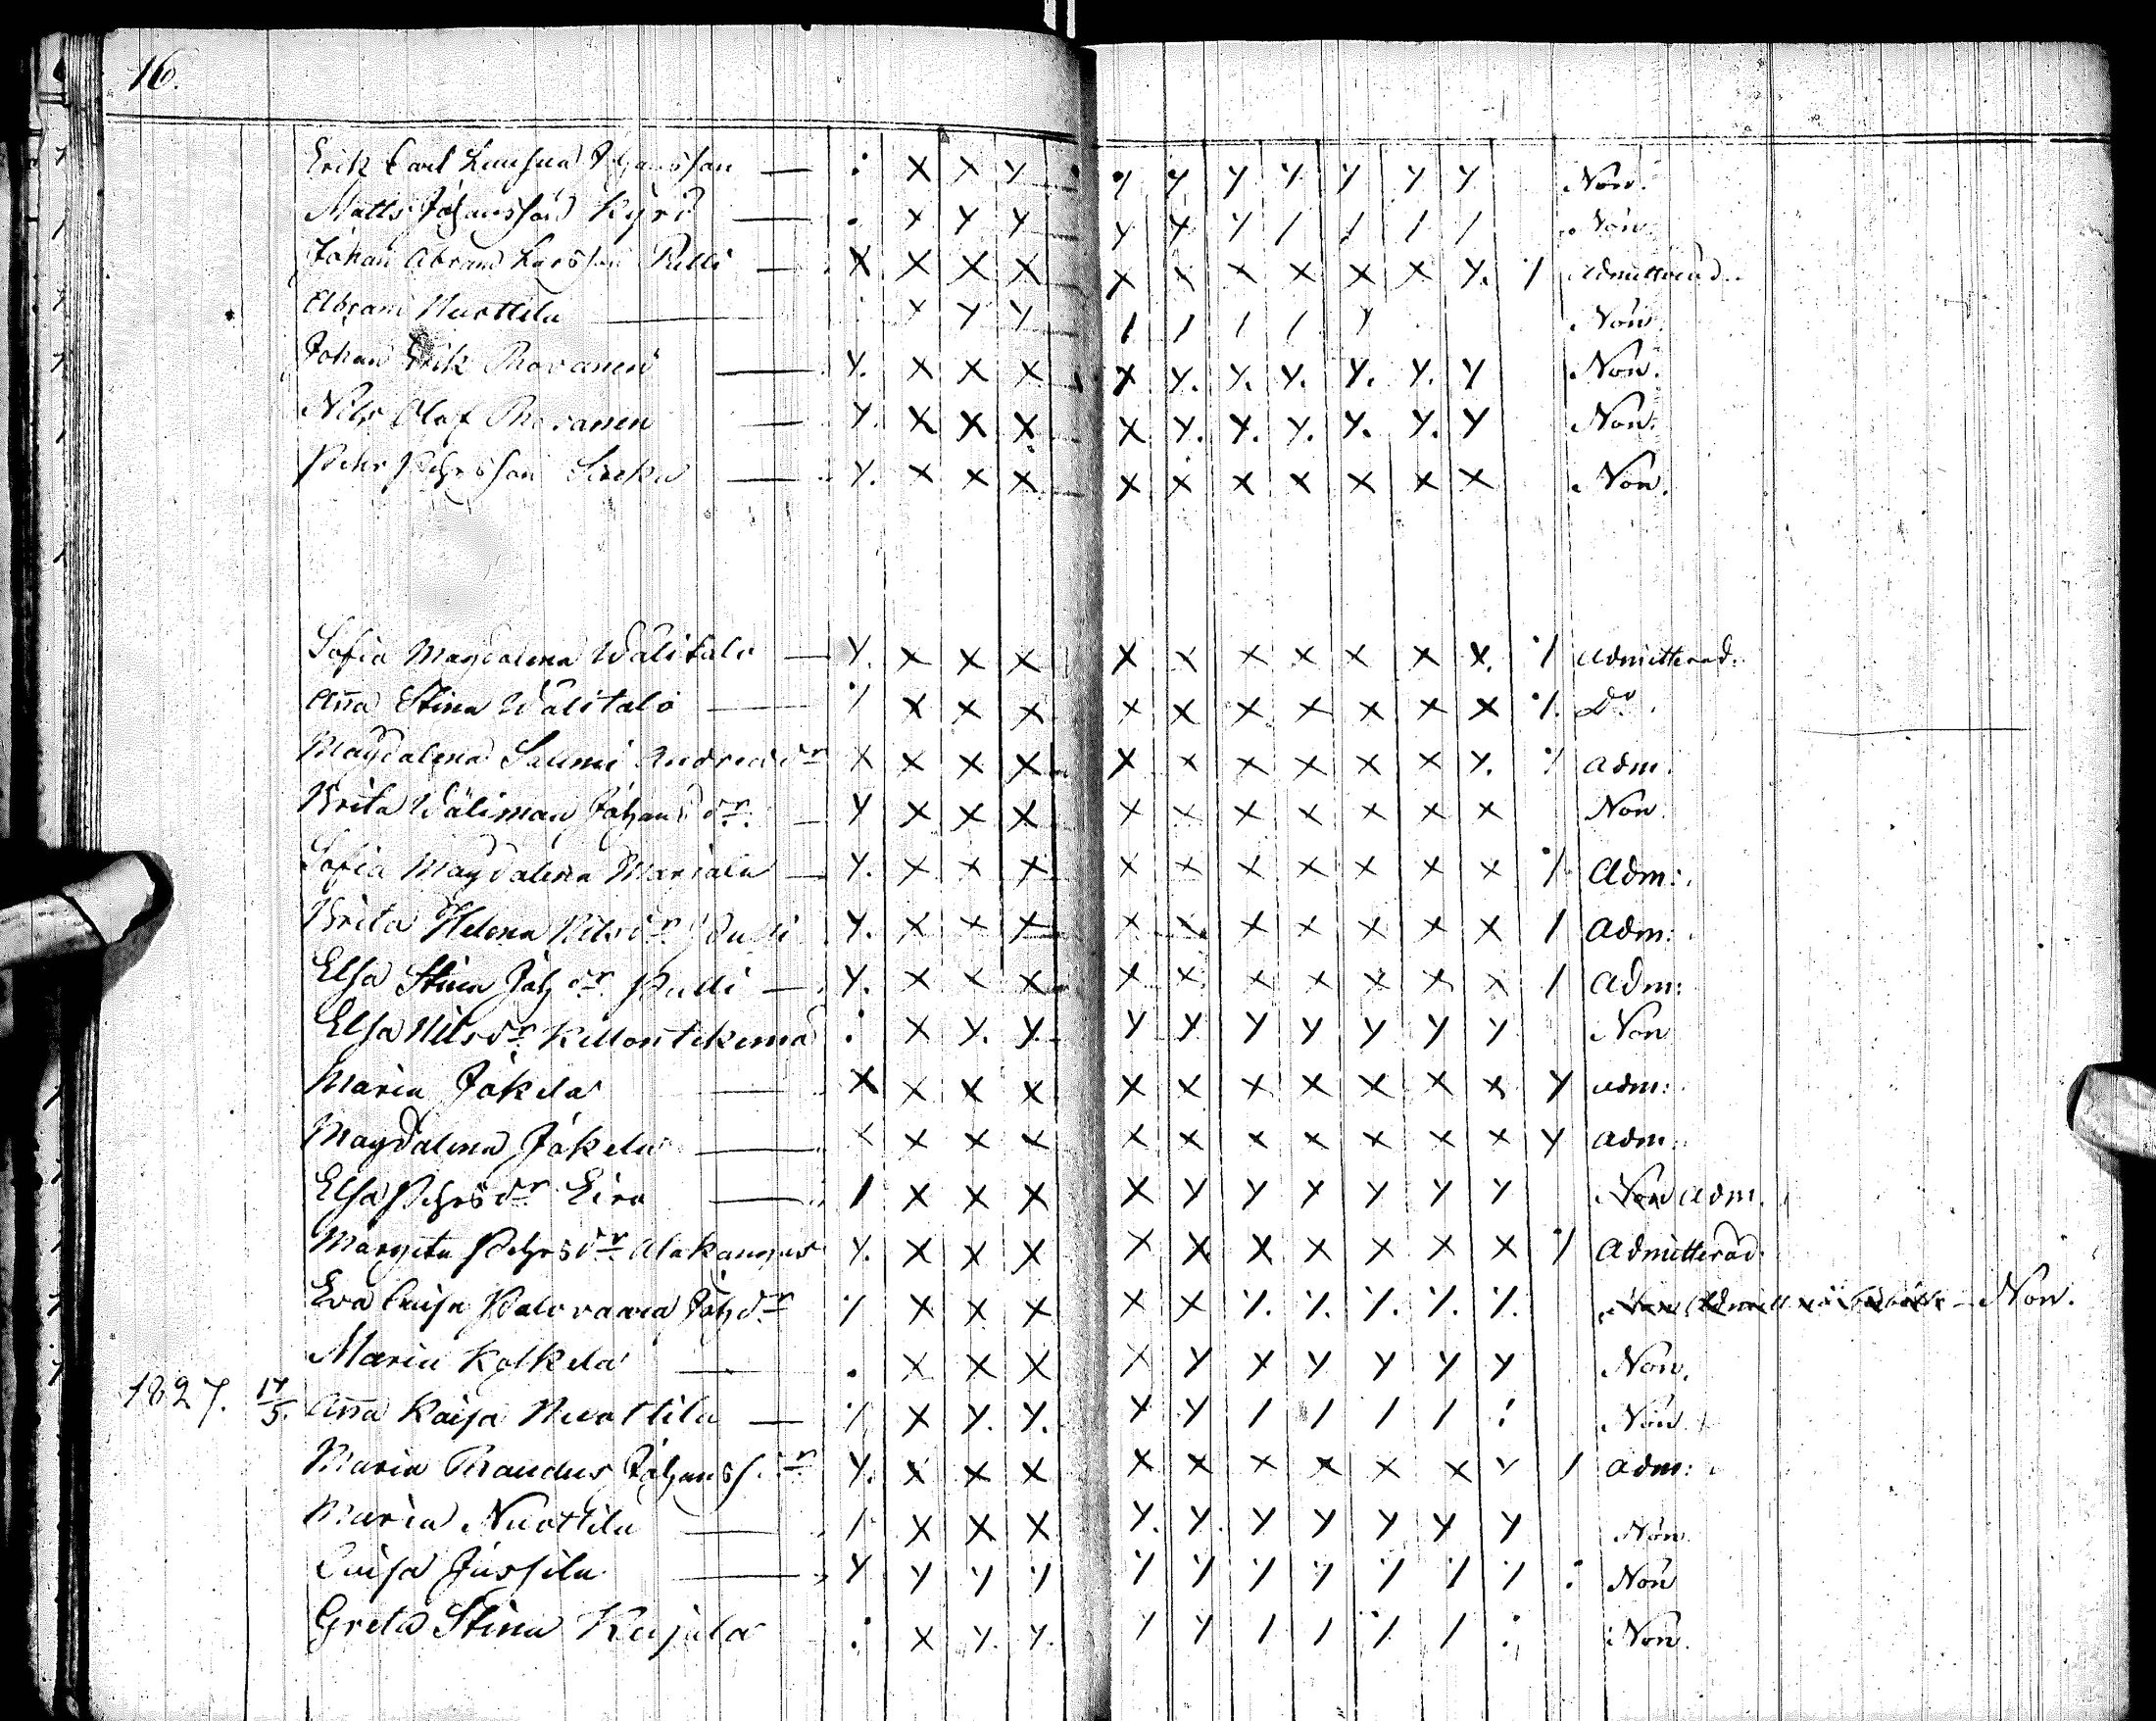 16.
Erik Carl Johansson — : x x y y y y y y y y Non.
Matts Johansson Kyrö — . x y y y x y / / / / Non.
Johan Abram Larsson Pulli — x x x x x x x x x x y. ·/ Admitterad.
Abram Nuottila — y y y / / / / y Non.
Johan Erik Rovanen — y. x x x x y. y. y. y. y. y Non.
Nils Olof Rovanen — y. x x x x y. y. y. y. y. y Non.
Pehr Pehrsson — y. x x x x x x x x x x Non.
Sofia Magdalena Wälitalo — y. x x x x x x x x x x. ·/ Admitterad.
Aña Stina Wälitalo — ·/ x x x x x x x x x x ·/. Do.
Magdalena Salmi Andersdr x x x x x x x x x x y. ·/ Adm.
Brita Wälimaa Johansdr. — y x x x x x x x x x x Non.
Sofia Magdalena Marjala — y. x x x x x x x x x x ·/. Adm:.
Brita Helena Nilsdr Pulli y. x x x x x x x x x x / Adm:
Elsa Stina Johdr. Pulli — y. x x x x x x x x x x / Adm:
Elsa Nilsdr. : x y. y. y y y y y y y Non
Maria Jokela — x x x x x x x x x x x y Adm:
Magdalena Jokela — x x x x x x x x x x x y Adm:
Elsa Pehrsdr Eira — / x x x x y y y y y y Non Adm.
Margeta Pehrsdr Alakangas y. x x x x x x x x x x ·/ Admitterad.
Eva Caisa Palovaara Johdr ·/ x x x x x ·/. ·/. ·/. ·/. ·/. — Non.
Maria Kolkela — . x x x x y y y y y y Non.
1827. 17/5. Aña Kaisa Nuottila — ·/ x y. y. x y / / / / ! Non.
Maria Johanssdr y. x x x x x x x x x y / Adm:
Maria Nuottila — / x x x y. y. y y y y y Non.
Caisa Jussila — y y y y ·/ y ·/ y ·/ ·/ ·/ : Non
Greta Stina — : x y. y. y y / / ·/ / : Non.